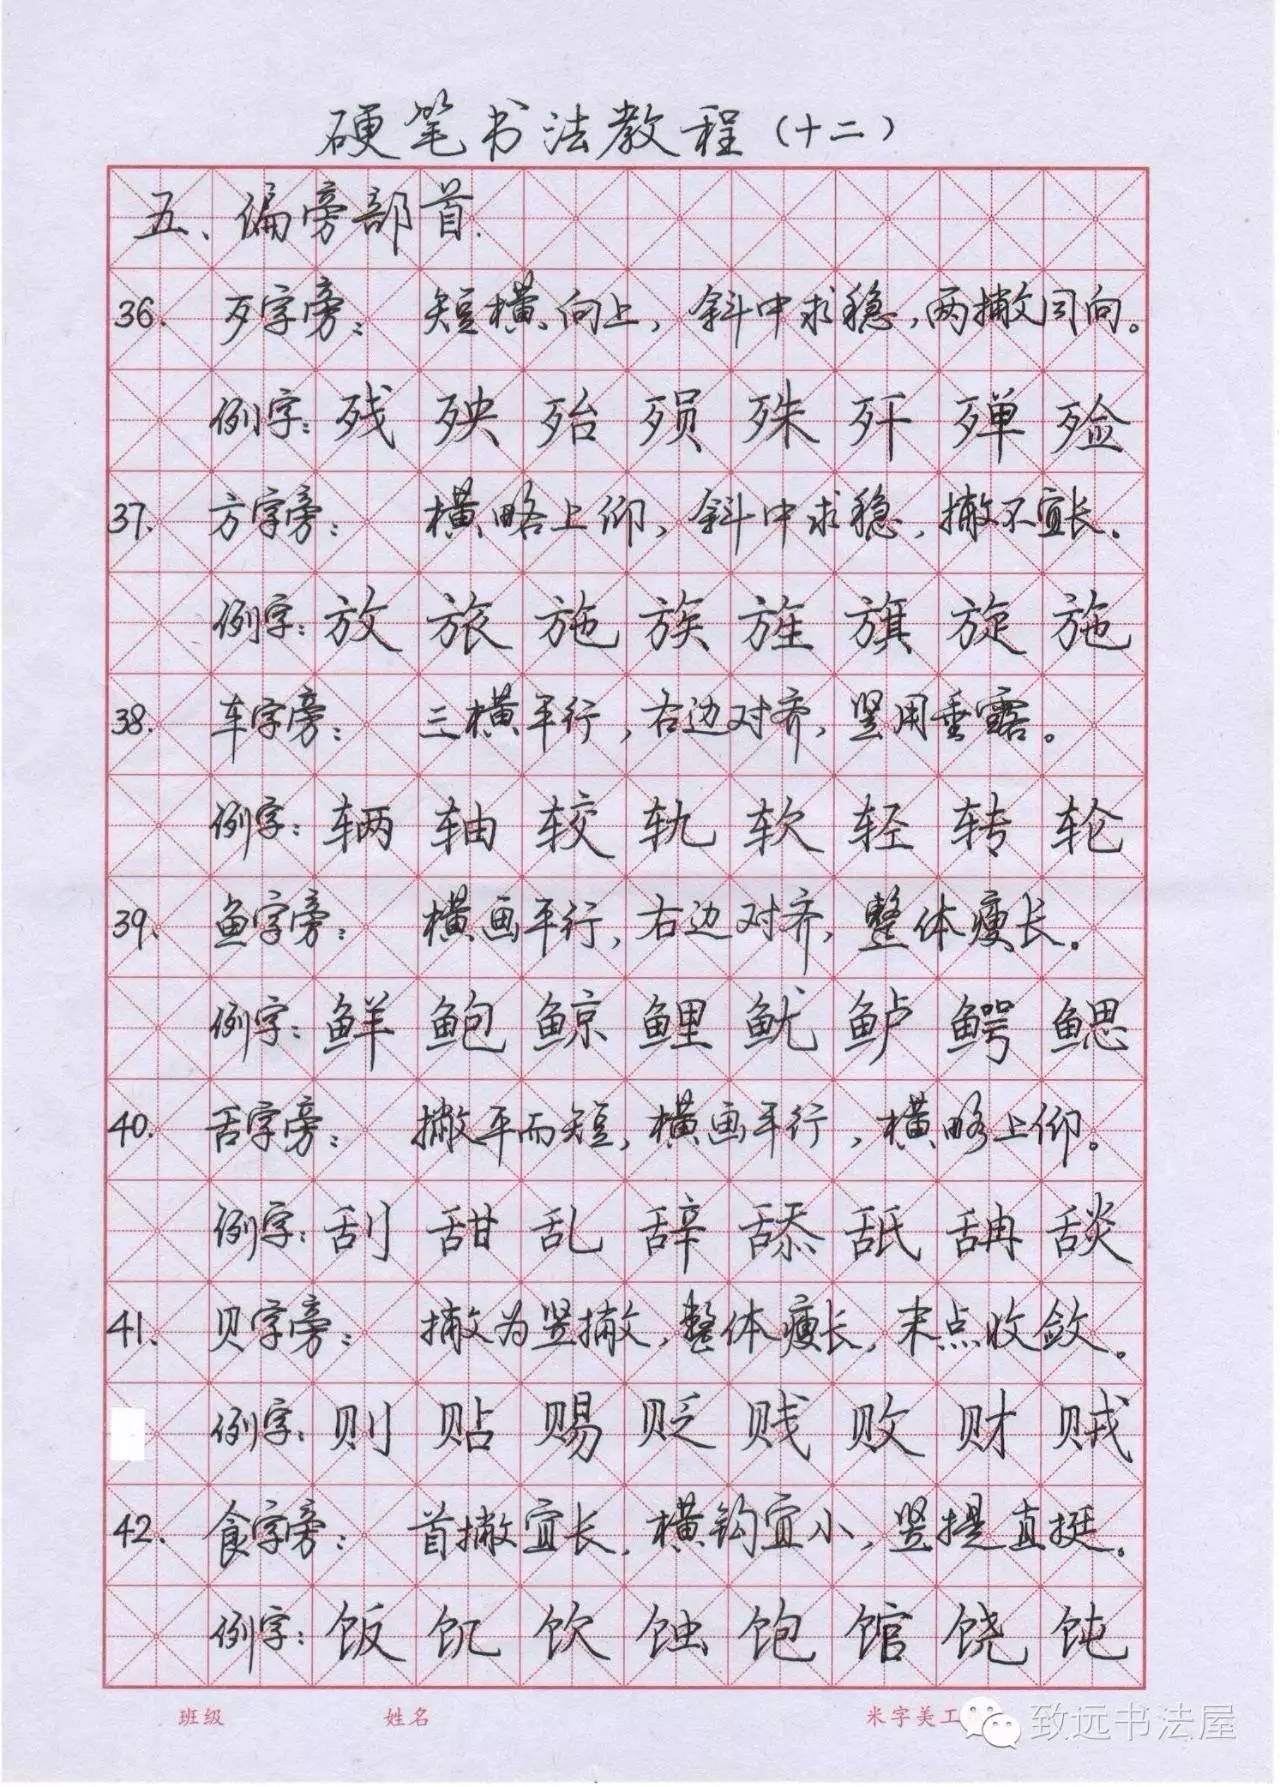 硬笔书法教程（十二）
五、偏旁部首.
36. 歹字旁： 短横向上，斜中求稳，两撇同向。
例字：残 殃 殆 殒 殊 歼 殚 殓
37. 方字旁： 横略上仰，斜中求稳，撇不宜长。
例字：放 旅 施 族 旌 旗 旋 施
38. 车字旁： 三横平行，右边对齐，竖用垂露。
例字：辆 轴 较 轨 软 轻 转 轮
39. 鱼字旁： 横画平行，右边对齐，整体瘦长。
例字：鲜 鲍 鲸 鲤 鱿 鲈 鳄 鳃
40. 舌字旁： 撇平而短，横画平行，横略上仰。
例字：刮 甜 乱 辞 舔 舐 舑 舕
41. 贝字旁： 撇为竖撇，整体瘦长，末点收敛。
例字：则 贴 赐 贬 贱 败 财 贼
42. 食字旁： 首撇宜长，横钩宜小，竖提直挺。
例字：饭 饥 饮 蚀 饱 馆 饶 饨
班级 姓名 米字美工
致远书法屋